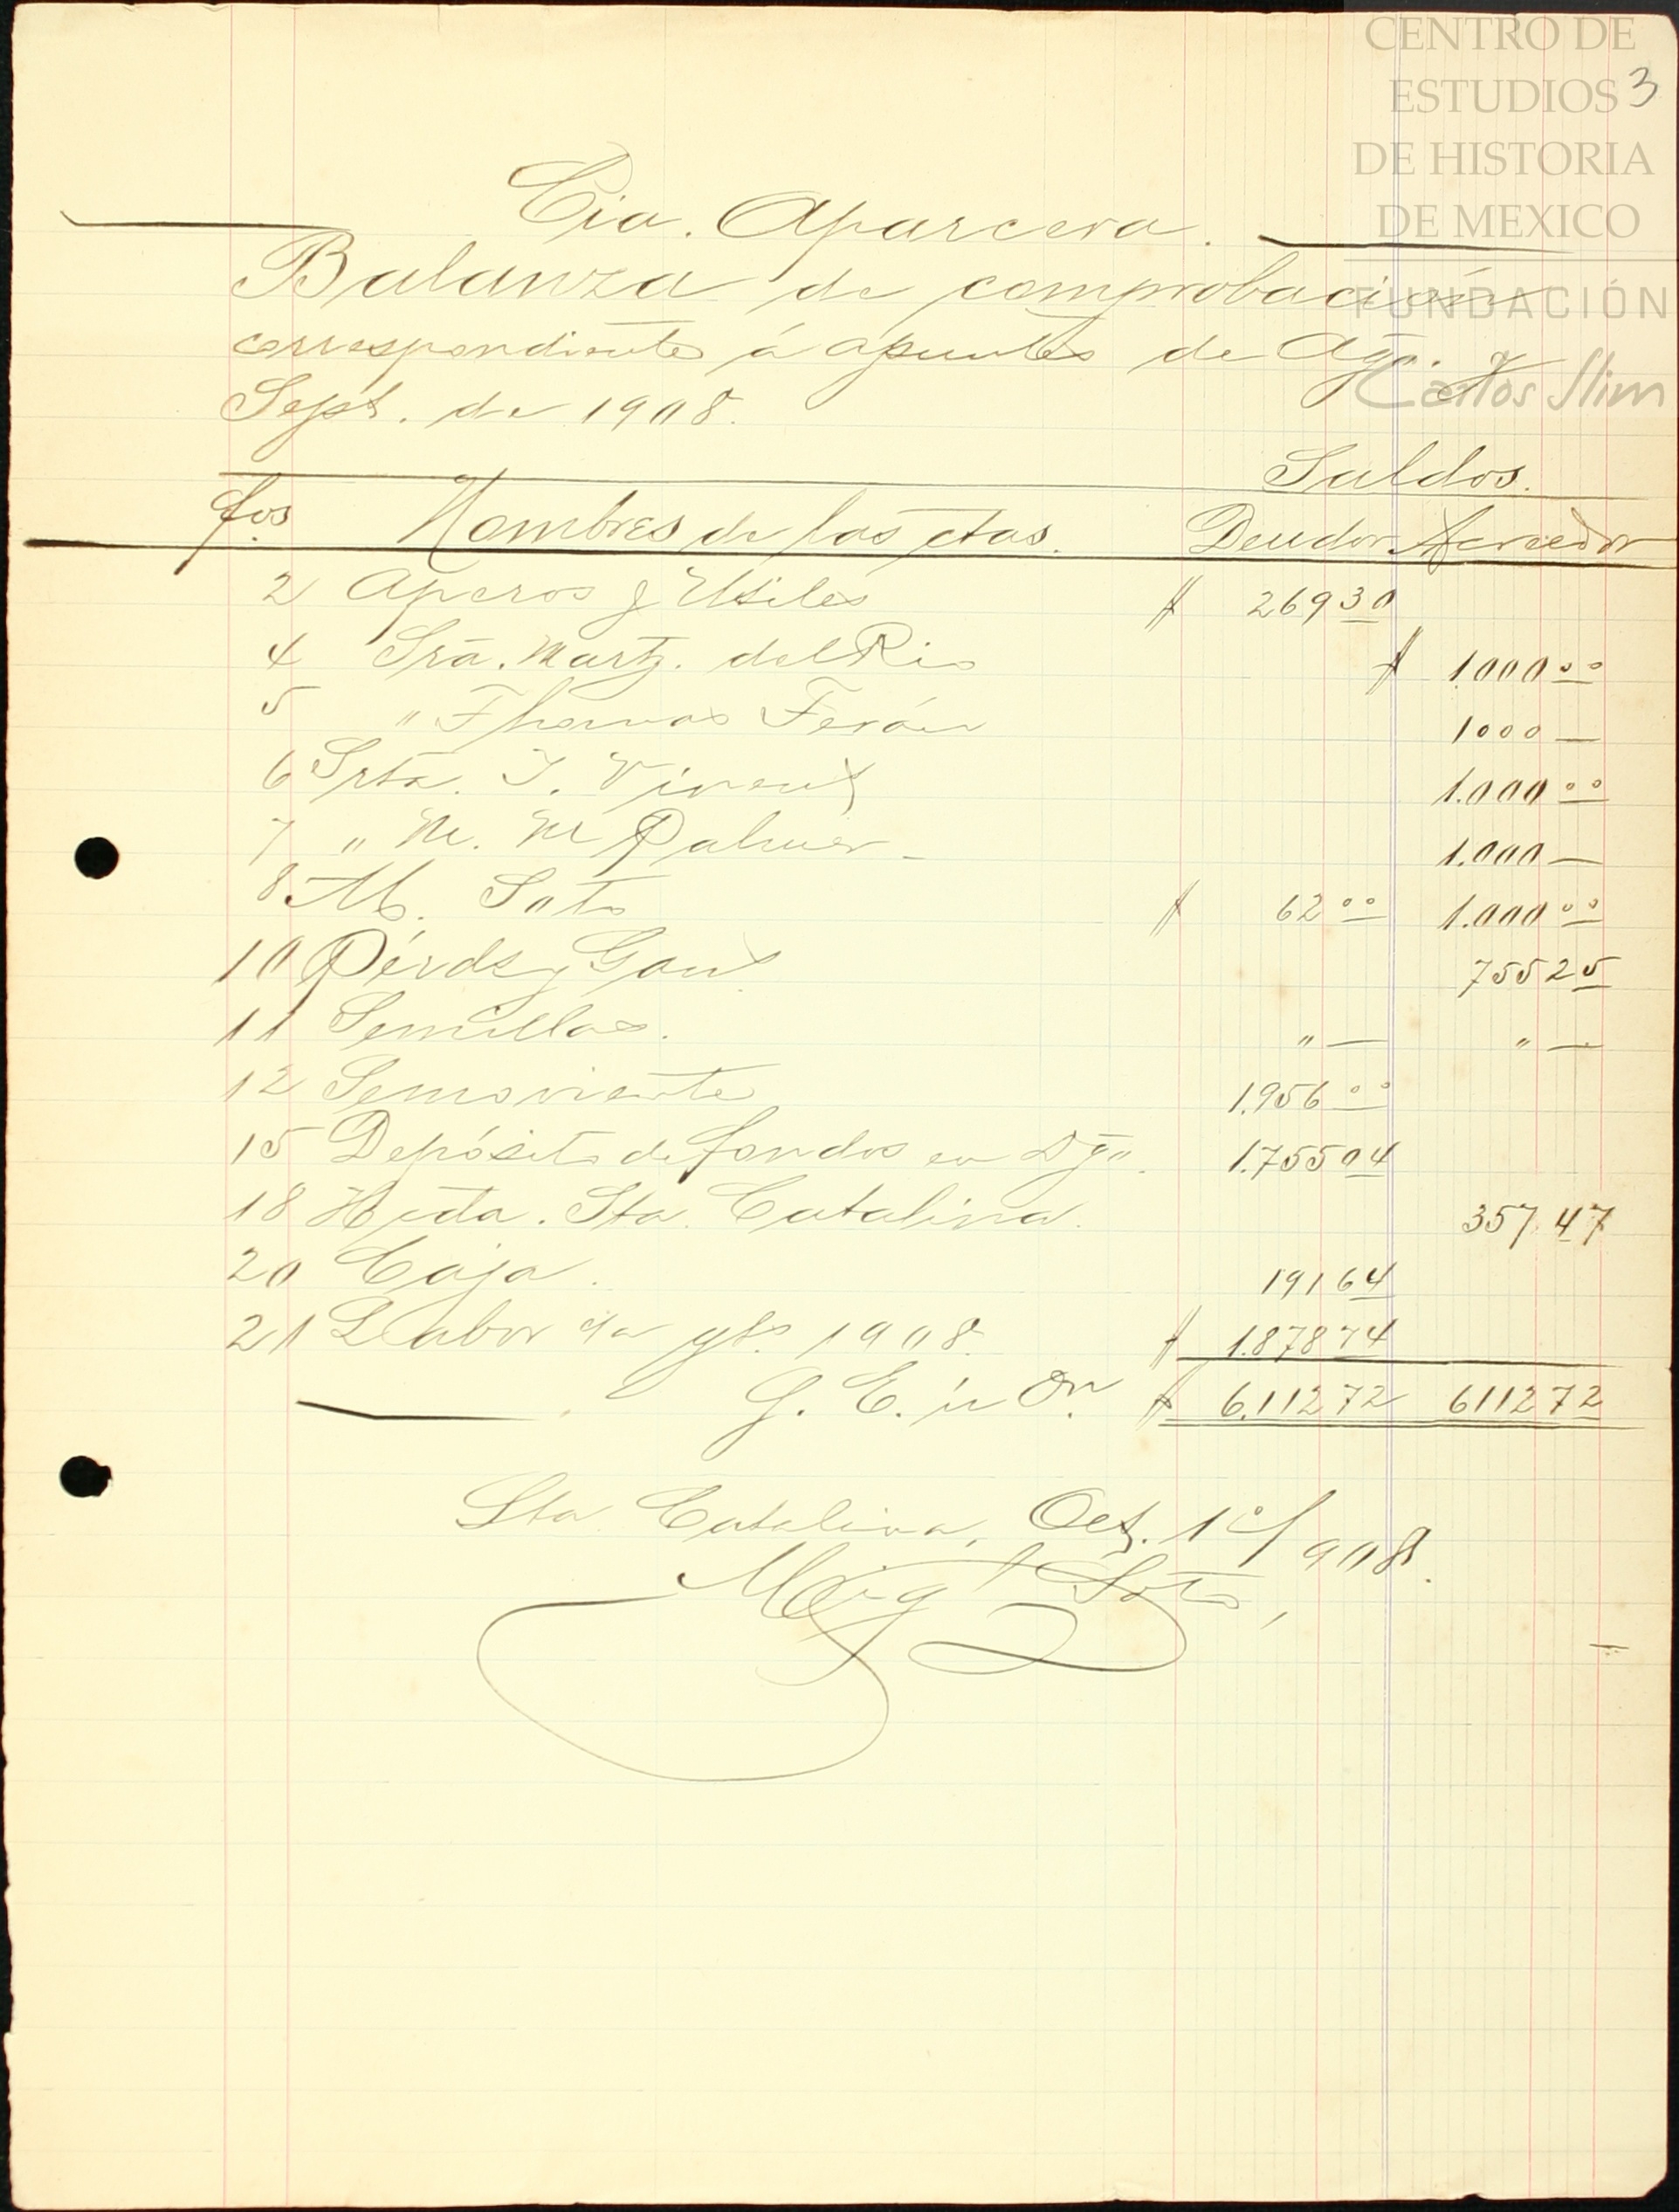 CENTRO DE
ESTUDIOS 3
DE HISTORIA
DE MEXICO
FUNDACIÓN
Carlos Slim
Cia. Aparcera.
Balanza de comprobación
correspondiente á apuntes de Ago. y
Sept. de 1908.
Saldos.
fos. Nombres de las ctas. Deudor Acreedor
2 Aperos y Utiles $ 269 30
4 Sra. Martz. del Rio $ 1000 00
5 " Thomas Terán 1000 —
6 Srta. T. Vinent 1.000 00
7 " M. M Palmer - 1.000 —
8 M. Soto $ 62 00 1.000 00
10 Pérds y Gans. 755 25
11 Semillas. " — " —
12 Semoviente 1.956 00
15 Depósito de fondos en Dgo. 1.755 04
18 Hcda. Sta. Catalina. 357 47
20 Caja. 191 64
21 Labor de 1908. $ 1.878 74
G. E. ú On. $ 6.112 72 6112 72
Sta Catalina, Oct. 1o/908.
Mig Soto,